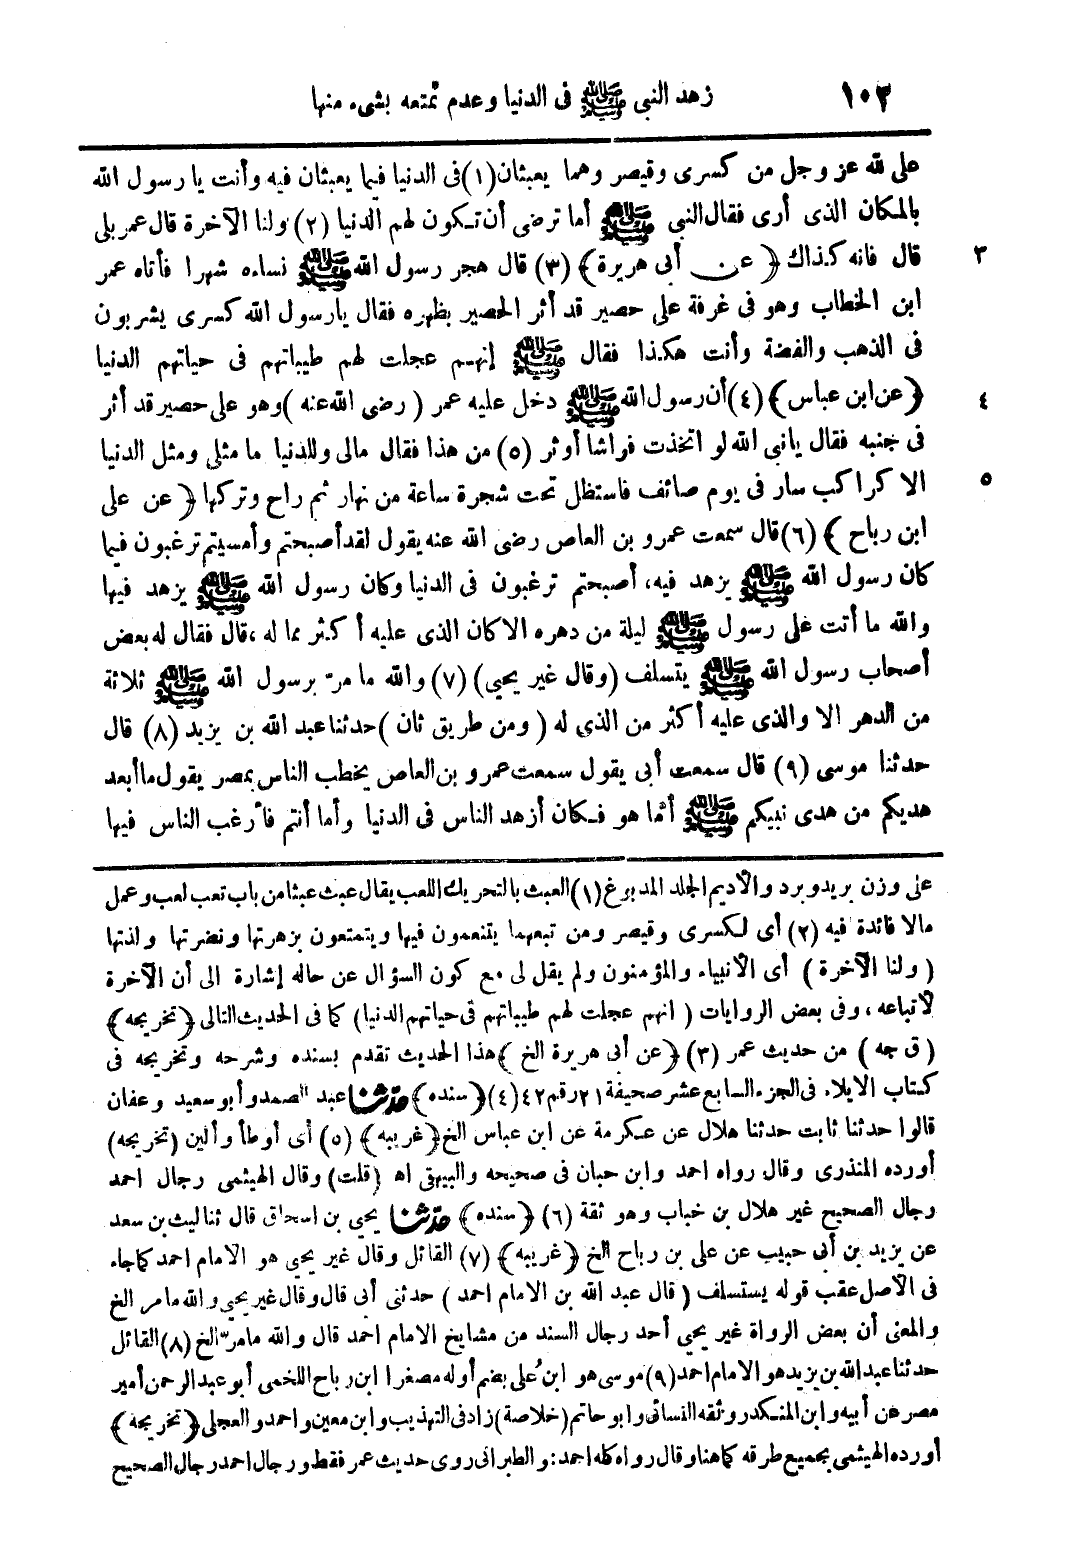 ١٠٣ زهد النبى ﷺ فى الدنيا وعدم تمتعه بشىء منها
على لله عز وجل من كسرى وقيصر وهما يعبثان (١) فى الدنيا فيما يعبثان فيه وأنت يا رسول الله
بالمكان الذى أرى فقال النبى ﷺ أما ترضى أن تكون لهم الدنيا (٢) ولنا الآخرة قال عمر بلى
٣ قال فانه كذاك ﴿ عن أبى هريرة ﴾ (٣) قال هجر رسول الله ﷺ نساءه شهرا فأتاه عمر
ابن الخطاب وهو فى غرفة على حصير قد أثر الحصير بظهره فقال يا رسول الله كسرى يشربون
فى الذهب والفضة وأنت هكذا فقال ﷺ إنهم عجلت لهم طيباتهم فى حياتهم الدنيا
٤ ﴿ عن ابن عباس ﴾ (٤) أن رسول الله ﷺ دخل عليه عمر ( رضى الله عنه ) وهو على حصير قد أثر
فى جنبه فقال يانبى الله لو اتخذت فراشا أوثر (٥) من هذا فقال مالى وللدنيا ما مثلى ومثل الدنيا
٥ الا كراكب سار فى يوم صائف فاستظل تحت شجرة ساعة من نهار ثم راح وتركها ﴿ عن على
ابن رباح ﴾ (٦) قال سمعت عمرو بن العاص رضى الله عنه يقول لقد أصبحتم وأمسيتم ترغبون فيما
كان رسول الله ﷺ يزهد فيه، أصبحتم ترغبون فى الدنيا وكان رسول الله ﷺ يزهد فيها
والله ما أتت على رسول ﷺ ليلة من دهره الا كان الذى عليه أكثر مما له ، قال فقال له بعض
أصحاب رسول الله ﷺ يتسلف (وقال غير يحيى) (٧) والله ما مرّ برسول الله ﷺ ثلاثة
من الدهر الا والذى عليه أكثر من الذى له ( ومن طريق ثان ) حدثنا عبد الله بن يزيد (٨) قال
حدثنا موسى (٩) قال سمعت أبى يقول سمعت عمرو بن العاص يخطب الناس بمصر يقول ما أبعد
هديكم من هدى نبيكم ﷺ أما هو فكان أزهد الناس فى الدنيا وأما أنتم فأرغب الناس فيها
على وزن بريد وبرد والأديم الجلد المدبوغ (١) العبث بالتحريك اللعب يقال عبث عبثا من باب تعب لعب وعمل
مالا فائدة فيه (٢) أى لكسرى وقيصر ومن تبعهما يتنعمون فيها ويتمتعون بزهرتها ونضرتها ولذتها
( ولنا الآخرة ) أى الأنبياء والمؤمنون ولم يقل لى مع كون السؤال عن حاله إشارة الى أن الآخرة
لأتباعه ، وفى بعض الروايات ( انهم عجلت لهم طيباتهم فى حياتهم الدنيا) كما فى الحديث التالى ﴿ تخريجه ﴾
( ق جه ) من حديث عمر (٣) ﴿ عن أبى هريرة الخ ﴾ هذا الحديث تقدم بسنده وشرحه وتخريجه فى
كتاب الايلاء فى الجزء السابع عشر صحيفة ٢١ رقم ٤٢ (٤) ﴿ سنده ﴾ حدّثنا عبد الصمد وأبو سعيد وعفان
قالوا حدثنا ثابت حدثنا هلال عن عكرمة عن ابن عباس الخ ﴿ غريبه ﴾ (٥) أى أوطأ وألين (تخريجه)
أورده المنذرى وقال رواه احمد وابن حبان فى صحيحه والبيهقى اه (قلت) وقال الهيثمى رجال احمد
رجال الصحيح غير هلال بن خباب وهو ثقة (٦) ﴿ سنده ﴾ حدّثنا يحيى بن اسحاق قال ثنا ليث بن سعد
عن يزيد بن أبى حبيب عن على بن رباح الخ ﴿ غريبه ﴾ (٧) القائل وقال غير يحيى هو الامام احمد كما جاء
فى الأصل عقب قوله يستسلف ( قال عبد الله بن الامام احمد ) حدثنى أبى قال وقال غير يحيى والله ما مر الخ
والمعنى أن بعض الرواة غير يحيى أحد رجال السند من مشايخ الامام احمد قال والله ما مرّ الخ (٨) القائل
حدثنا عبد الله بن يزيد هو الامام احمد (٩) موسى هو ابن عُلى بضم أوله مصغرا ابن رباح اللخمى أبو عبد الرحمن أمير
مصر عن أبيه وابن المنكدر وثقه النسائى وابو حاتم (خلاصة) زاد فى التهذيب وابن معين واحمد والعجلى ﴿ تخريجه ﴾
أورده الهيثمى بجميع طرقه كما هنا وقال رواه كله احمد: والطبرانى روى حديث عمر فقط ورجال احمد رجال الصحيح